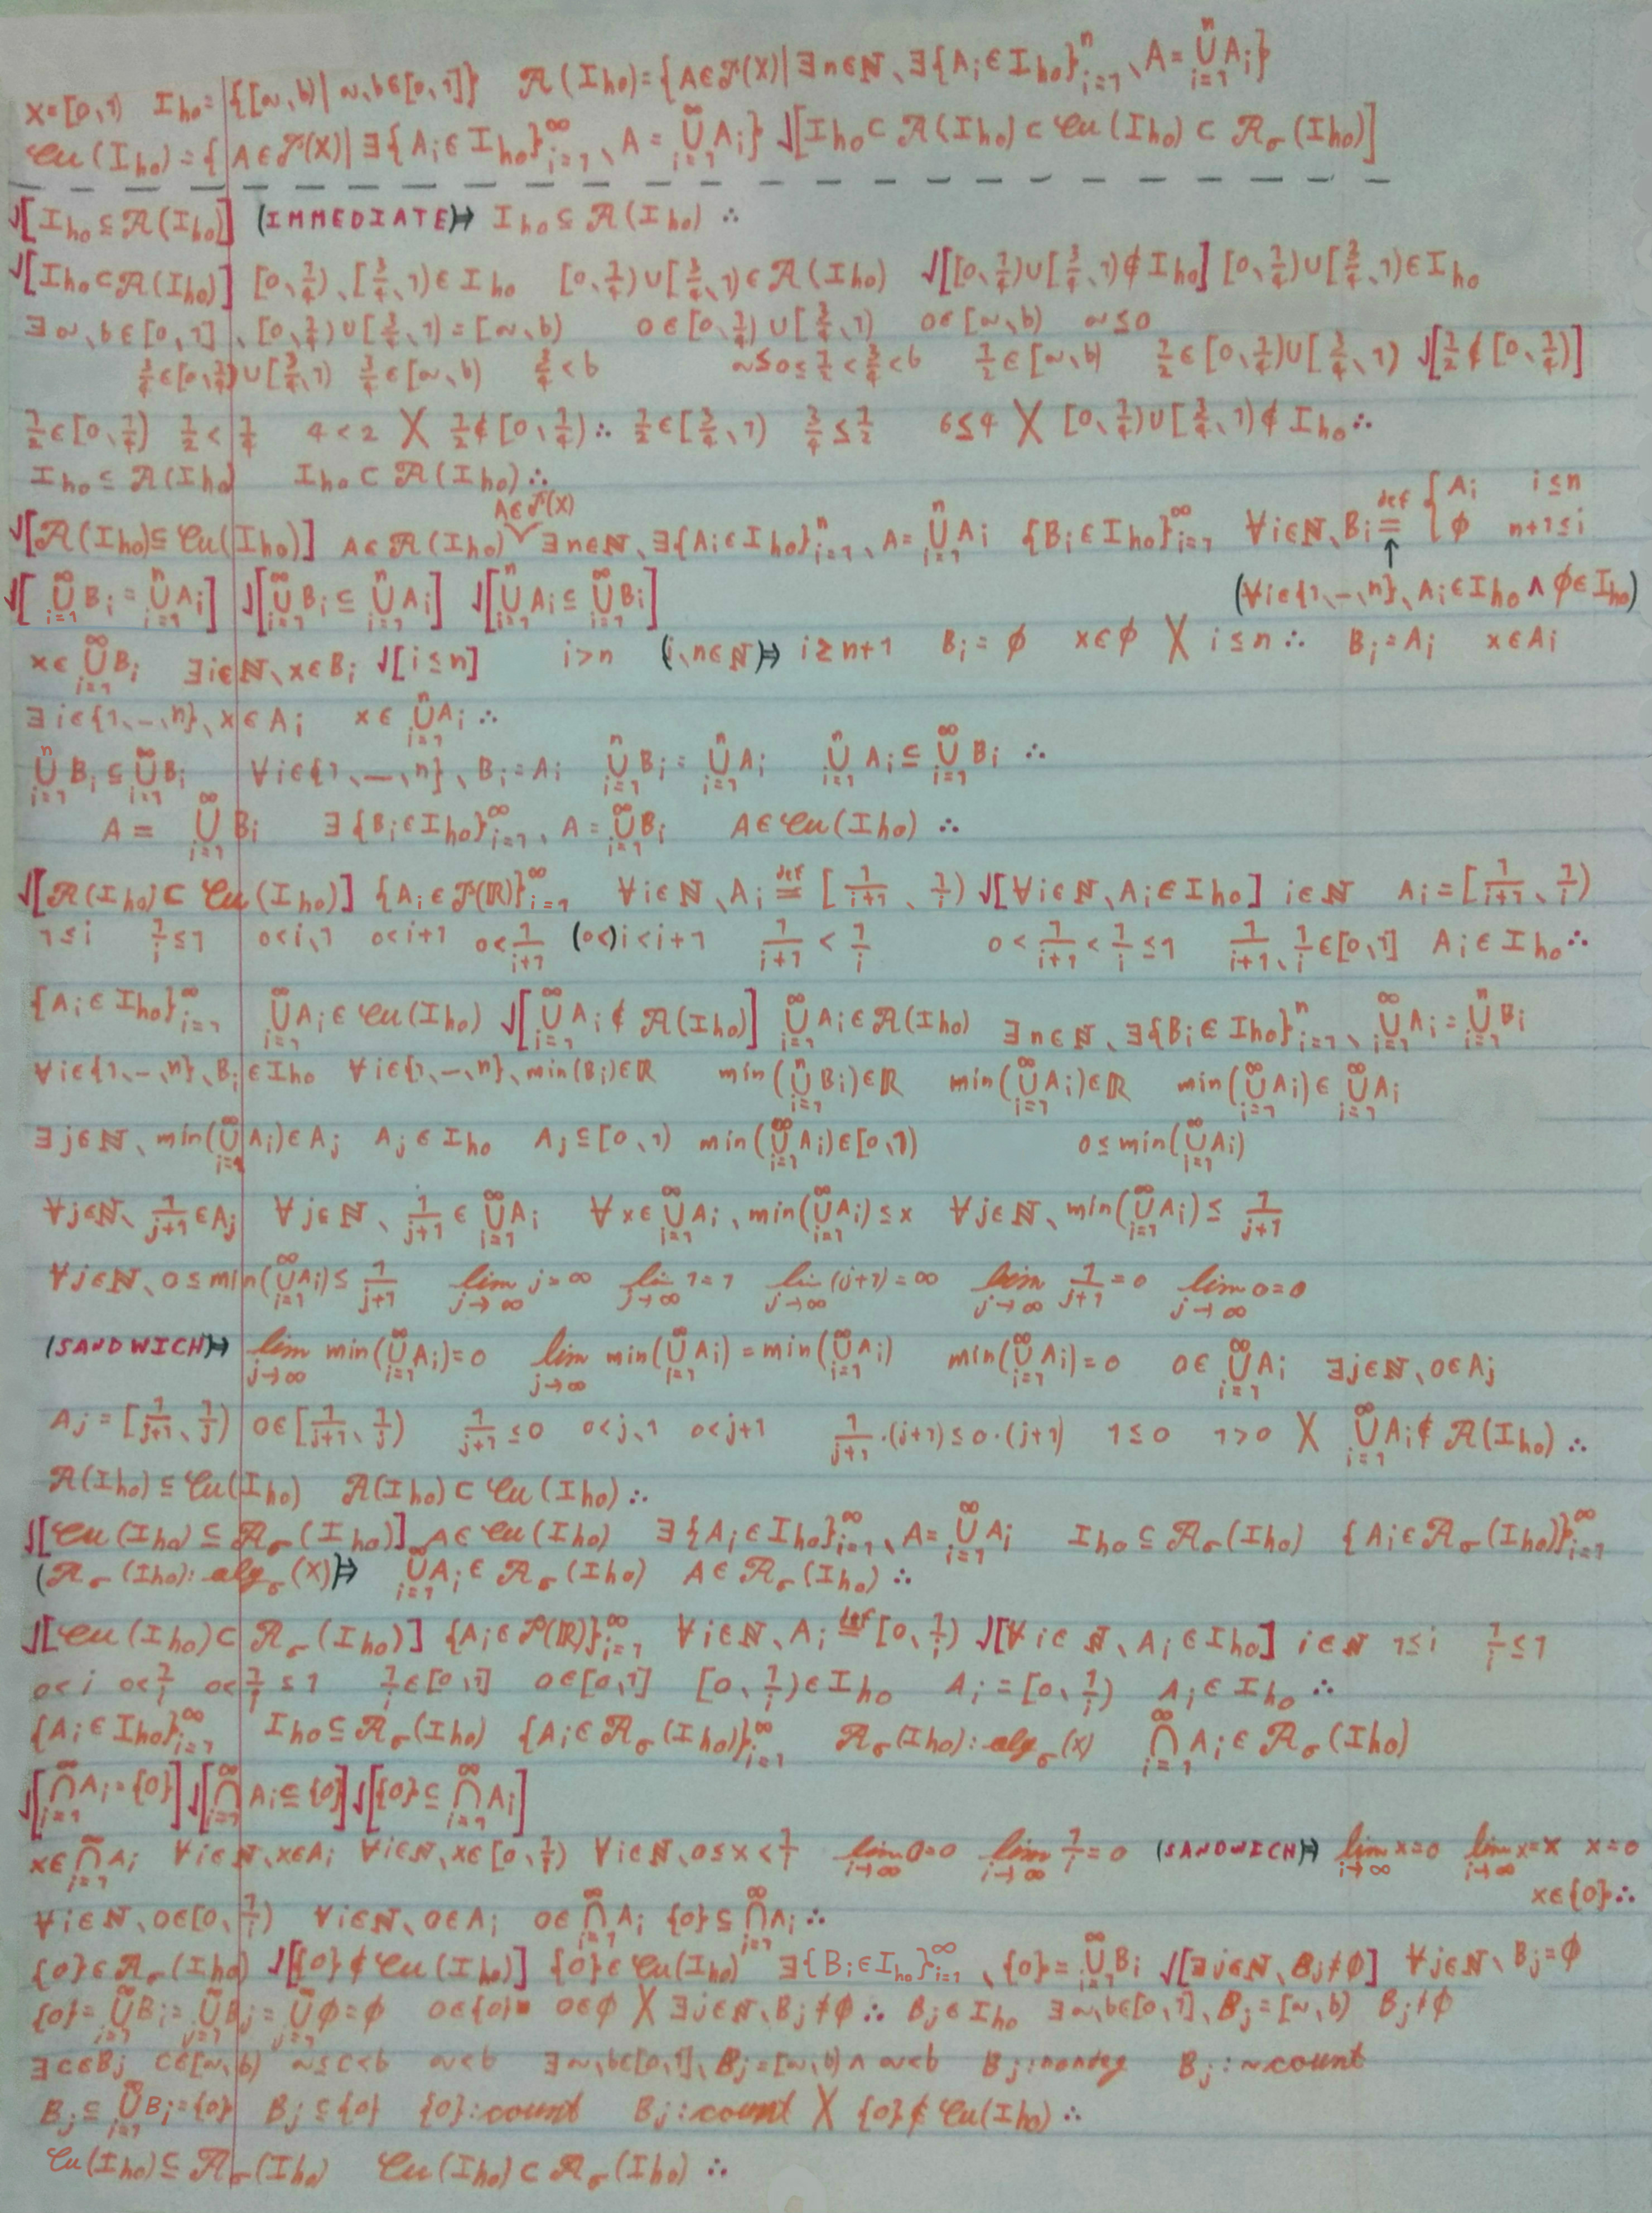 X=[0,1) I_ho={[a,b)|a,b∈[0,1]} 𝒜(I_ho)={A∈𝒫(X)|∃n∈ℕ,∃{A_i∈I_ho}_{i=1}^n, A=⋃_{i=1}^n A_i}
Cu(I_ho)={A∈𝒫(X)|∃{A_i∈I_ho}_{i=1}^∞, A=⋃_{i=1}^∞ A_i} √[I_ho⊂𝒜(I_ho)⊂Cu(I_ho)⊂𝒜_σ(I_ho)]
√[I_ho⊆𝒜(I_ho)] (IMMEDIATE)↦ I_ho⊆𝒜(I_ho) ∴
√[I_ho⊂𝒜(I_ho)] [0,1/4),[3/4,1)∈I_ho [0,1/4)∪[3/4,1)∈𝒜(I_ho) √[[0,1/4)∪[3/4,1)∉I_ho] [0,1/4)∪[3/4,1)∈I_ho
∃a,b∈[0,1],[0,1/4)∪[3/4,1)=[a,b) 0∈[0,1/4)∪[3/4,1) 0∈[a,b) a≤0
3/4∈[0,1/4)∪[3/4,1) 3/4∈[a,b) 3/4<b a≤0≤1/2<3/4<b 1/2∈[a,b) 1/2∈[0,1/4)∪[3/4,1) √[1/2∉[0,1/4)]
1/2∈[0,1/4) 1/2<1/4 4<2 X 1/2∉[0,1/4)∴ 1/2∈[3/4,1) 3/4≤1/2 6≤4 X [0,1/4)∪[3/4,1)∉I_ho∴
I_ho⊆𝒜(I_ho) I_ho⊂𝒜(I_ho)∴
√[𝒜(I_ho)⊆Cu(I_ho)] A∈𝒜(I_ho) A∈𝒫(X) ∃n∈ℕ,∃{A_i∈I_ho}_{i=1}^n, A=⋃_{i=1}^n A_i {B_i∈I_ho}_{i=1}^∞ ∀i∈ℕ,B_i =def {A_i i≤n
∅ n+1≤i
√[⋃_{i=1}^∞ B_i=⋃_{i=1}^n A_i] √[⋃_{i=1}^∞ B_i⊆⋃_{i=1}^n A_i] √[⋃_{i=1}^n A_i⊆⋃_{i=1}^∞ B_i] ↑ (∀i∈{1,-,n},A_i∈I_ho∧∅∈I_ho)
x∈⋃_{i=1}^∞ B_i ∃i∈ℕ,x∈B_i √[i≤n] i>n (i,n∈ℕ)↦ i≥n+1 B_i=∅ x∈∅ X i≤n∴ B_i=A_i x∈A_i
∃i∈{1,-,n},x∈A_i x∈⋃_{i=1}^n A_i ∴
⋃_{i=1}^n B_i⊆⋃_{i=1}^∞ B_i ∀i∈{1,—,n},B_i=A_i ⋃_{i=1}^n B_i=⋃_{i=1}^n A_i ⋃_{i=1}^n A_i⊆⋃_{i=1}^∞ B_i ∴
A=⋃_{i=1}^∞ B_i ∃{B_i∈I_ho}_{i=1}^∞, A=⋃_{i=1}^∞ B_i A∈Cu(I_ho) ∴
√[𝒜(I_ho)⊂Cu(I_ho)] {A_i∈𝒫(ℝ)}_{i=1}^∞ ∀i∈ℕ,A_i =def [1/(i+1),1/i) √[∀i∈ℕ,A_i∈I_ho] i∈ℕ A_i=[1/(i+1),1/i)
1≤i 1/i≤1 0<i,1 0<i+1 0<1/(i+1) (0<)i<i+1 1/(i+1)<1/i 0<1/(i+1)<1/i≤1 1/(i+1),1/i∈[0,1] A_i∈I_ho∴
{A_i∈I_ho}_{i=1}^∞ ⋃_{i=1}^∞ A_i∈Cu(I_ho) √[⋃_{i=1}^∞ A_i∉𝒜(I_ho)] ⋃_{i=1}^∞ A_i∈𝒜(I_ho) ∃n∈ℕ,∃{B_i∈I_ho}_{i=1}^n, ⋃_{i=1}^∞ A_i=⋃_{i=1}^n B_i
∀i∈{1,-,n},B_i∈I_ho ∀i∈{1,-,n},min(B_i)∈ℝ min(⋃_{i=1}^n B_i)∈ℝ min(⋃_{i=1}^∞ A_i)∈ℝ min(⋃_{i=1}^∞ A_i)∈⋃_{i=1}^∞ A_i
∃j∈ℕ,min(⋃_{i=1}^∞ A_i)∈A_j A_j∈I_ho A_j⊆[0,1) min(⋃_{i=1}^∞ A_i)∈[0,1) 0≤min(⋃_{i=1}^∞ A_i)
∀j∈ℕ,1/(j+1)∈A_j ∀j∈ℕ,1/(j+1)∈⋃_{i=1}^∞ A_i ∀x∈⋃_{i=1}^∞ A_i,min(⋃_{i=1}^∞ A_i)≤x ∀j∈ℕ,min(⋃_{i=1}^∞ A_i)≤1/(j+1)
∀j∈ℕ,0≤min(⋃_{i=1}^∞ A_i)≤1/(j+1) lim_{j→∞} j=∞ lim_{j→∞} 1=1 lim_{j→∞} (j+1)=∞ lim_{j→∞} 1/(j+1)=0 lim_{j→∞} 0=0
(SANDWICH)↦ lim_{j→∞} min(⋃_{i=1}^∞ A_i)=0 lim_{j→∞} min(⋃_{i=1}^∞ A_i)=min(⋃_{i=1}^∞ A_i) min(⋃_{i=1}^∞ A_i)=0 0∈⋃_{i=1}^∞ A_i ∃j∈ℕ,0∈A_j
A_j=[1/(j+1),1/j) 0∈[1/(j+1),1/j) 1/(j+1)≤0 0<j,1 0<j+1 1/(j+1)·(j+1)≤0·(j+1) 1≤0 1>0 X ⋃_{i=1}^∞ A_i∉𝒜(I_ho) ∴
𝒜(I_ho)⊆Cu(I_ho) 𝒜(I_ho)⊂Cu(I_ho)∴
√[Cu(I_ho)⊆𝒜_σ(I_ho)] A∈Cu(I_ho) ∃{A_i∈I_ho}_{i=1}^∞, A=⋃_{i=1}^∞ A_i I_ho⊆𝒜_σ(I_ho) {A_i∈𝒜_σ(I_ho)}_{i=1}^∞
(𝒜_σ(I_ho):alg_σ(X))↦ ⋃_{i=1}^∞ A_i∈𝒜_σ(I_ho) A∈𝒜_σ(I_ho) ∴
√[Cu(I_ho)⊂𝒜_σ(I_ho)] {A_i∈𝒫(ℝ)}_{i=1}^∞ ∀i∈ℕ,A_i =def [0,1/i) √[∀i∈ℕ,A_i∈I_ho] i∈ℕ 1≤i 1/i≤1
0<i 0<1/i 0<1/i≤1 1/i∈[0,1] 0∈[0,1] [0,1/i)∈I_ho A_i=[0,1/i) A_i∈I_ho ∴
{A_i∈I_ho}_{i=1}^∞ I_ho⊆𝒜_σ(I_ho) {A_i∈𝒜_σ(I_ho)}_{i=1}^∞ 𝒜_σ(I_ho):alg_σ(X) ⋂_{i=1}^∞ A_i∈𝒜_σ(I_ho)
√[⋂_{i=1}^∞ A_i={0}] √[⋂_{i=1}^∞ A_i⊆{0}] √[{0}⊆⋂_{i=1}^∞ A_i]
x∈⋂_{i=1}^∞ A_i ∀i∈ℕ,x∈A_i ∀i∈ℕ,x∈[0,1/i) ∀i∈ℕ,0≤x<1/i lim_{i→∞} 0=0 lim_{i→∞} 1/i=0 (SANDWICH)↦ lim_{i→∞} x=0 lim_{i→∞} x=x x=0
x∈{0}∴
∀i∈ℕ,0∈[0,1/i) ∀i∈ℕ,0∈A_i 0∈⋂_{i=1}^∞ A_i {0}⊆⋂_{i=1}^∞ A_i∴
{0}∈𝒜_σ(I_ho) √[{0}∉Cu(I_ho)] {0}∈Cu(I_ho) ∃{B_i∈I_ho}_{i=1}^∞, {0}=⋃_{i=1}^∞ B_i √[∃j∈ℕ,B_j≠∅] ∀j∈ℕ,B_j=∅
{0}=⋃_{i=1}^∞ B_i=⋃_{j=1}^∞ B_j=⋃_{j=1}^∞ ∅=∅ 0∈{0} 0∈∅ X ∃j∈ℕ,B_j≠∅∴ B_j∈I_ho ∃a,b∈[0,1],B_j=[a,b) B_j≠∅
∃c∈B_j c∈[a,b) a≤c<b a<b ∃a,b∈[0,1],B_j=[a,b)∧a<b B_j:nondeg B_j:~count
B_j⊆⋃_{i=1}^∞ B_i={0} B_j⊆{0} {0}:count B_j:count X {0}∉Cu(I_ho)∴
Cu(I_ho)⊆𝒜_σ(I_ho) Cu(I_ho)⊂𝒜_σ(I_ho) ∴